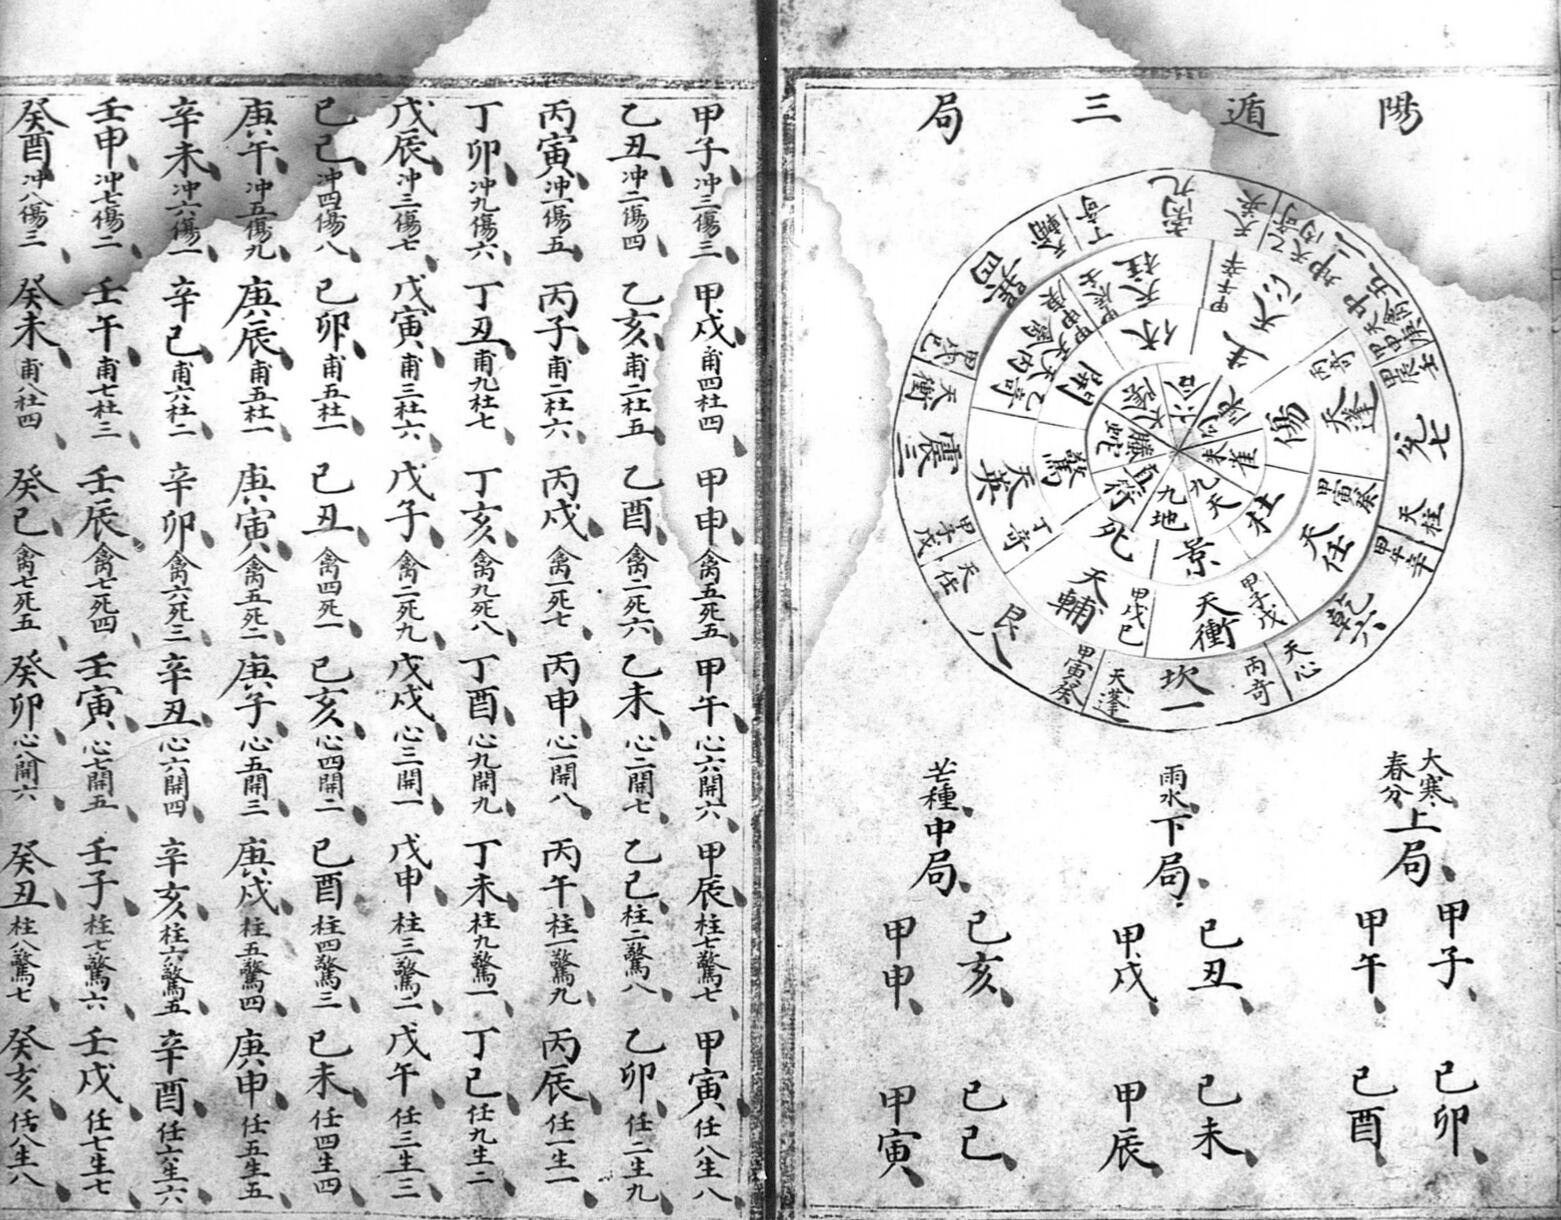 陽遁三局
坎一
天蓬
丙奇
艮八
天任
甲寅癸
震三
天衝
甲子戊
巽四
天輔
甲戌己
离九
天英
丁奇
坤二
天芮
乙奇
中五
天禽
甲申庚
兌七
天柱
甲辰壬
乾六
天心
甲午辛
天衝
甲子戊
天輔
甲戌己
天英
丁奇
天芮
天禽
乙奇
甲申庚
天柱
甲辰壬
天心
甲午辛
天蓬
丙奇
天任
甲寅癸
景
死
驚
開
休
生
傷
杜
九地
直符
螣蛇
太陰
六合
勾陳
朱雀
九天
大寒春分上局
甲子 己卯
甲午 己酉
雨水下局
己丑 己未
甲戌 甲辰
芒種中局
己亥 己巳
甲申 甲寅
甲子冲三傷三 甲戌甫四杜四 甲申禽五死五 甲午心六開六 甲辰柱七驚七 甲寅任八生八
乙丑冲二傷四 乙亥甫二杜五 乙酉禽二死六 乙未心二開七 乙巳柱二驚八 乙卯任二生九
丙寅冲一傷五 丙子甫二杜六 丙戌禽一死七 丙申心一開八 丙午柱一驚九 丙辰任一生一
丁卯冲九傷六 丁丑甫九杜七 丁亥禽九死八 丁酉心九開九 丁未柱九驚一 丁巳任九生二
戊辰冲三傷七 戊寅甫三杜六 戊子禽二死九 戊戌心三開一 戊申柱三驚二 戊午任三生三
己巳冲四傷八 己卯甫五杜一 己丑禽四死一 己亥心四開二 己酉柱四驚三 己未任四生四
庚午冲五傷九 庚辰甫五杜一 庚寅禽五死二 庚子心五開三 庚戌柱五驚四 庚申任五生五
辛未冲六傷一 辛巳甫六杜二 辛卯禽六死三 辛丑心六開四 辛亥柱六驚五 辛酉任六生六
壬申冲七傷二 壬午甫七杜三 壬辰禽七死四 壬寅心七開五 壬子柱七驚六 壬戌任七生七
癸酉冲八傷三 癸未甫八杜四 癸巳禽七死五 癸卯心八開六 癸丑柱八驚七 癸亥任八生八